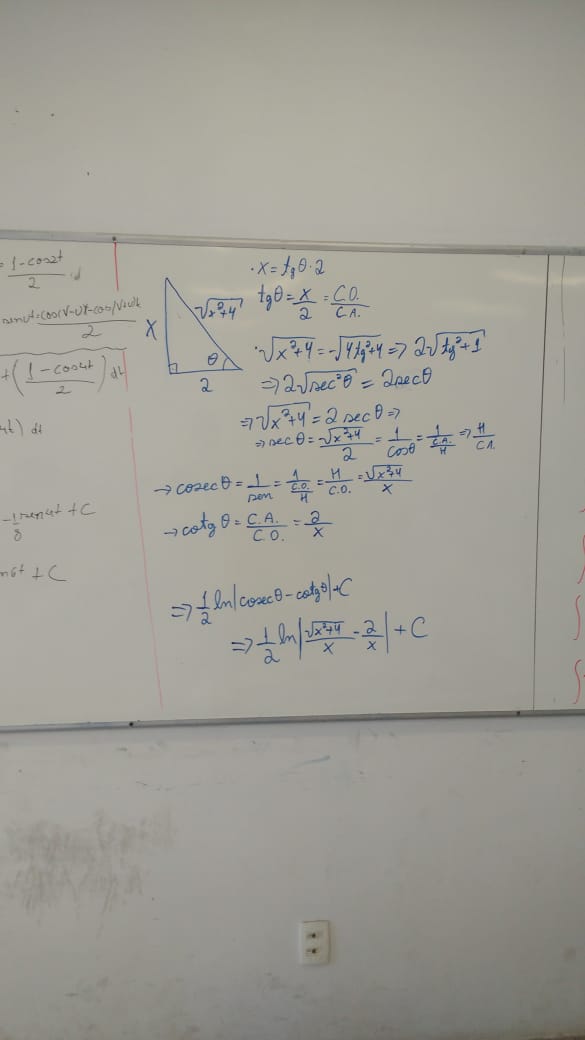 = 1-cos2t / 2 . d
senut = cos(v-u)t - cos(v+u)t / 2
+ (1-cos4t / 2) dt
4t) dt
- 1/8 sen4t + C
n6t + C
X
√x²+4
θ
2
· x = tgθ·2
tgθ = x/2 = C.O./C.A.
· √x²+4 = √4tg²+4 => 2√tg²+1
=> 2√sec²θ = 2secθ
=> √x²+4 = 2secθ =>
=> secθ = √x²+4 / 2 = 1/cosθ = 1/(C.A./H) => H/C.A.
→ cosecθ = 1/sen = 1/(C.O./H) = H/C.O. = √x²+4 / x
→ cotgθ = C.A./C.O. = 2/x
=> 1/2 ln|cosecθ - cotgθ| + C
=> 1/2 ln|√x²+4 / x - 2/x| + C